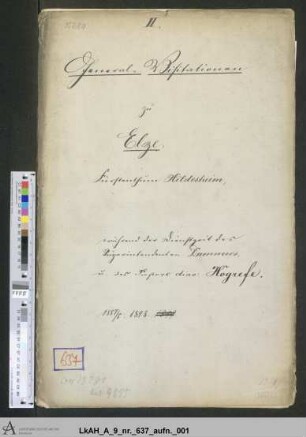 II.
General-Visitationen
zu
Elze.
Fürstenthum Hildesheim,
während der Dienstzeit des
Superintendenten
u. des Pastors Hogrefe.
1888
637
LkAH_A_9_nr._637_aufn._001